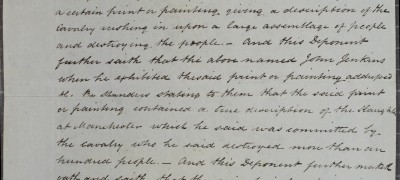 a certain print or painting, giving a description of the
cavalry rushing in upon a large assemblage of people
and destroying the people — And this Deponent
further saith that the above named John Jenkins
when he exhibited the said print or painting addressed
the By standers stating to them that the said print
or painting contained a true description of the Slaughter
at Manchester which he said was committed by
the cavalry who he said destroyed more than an
hundred people — And this Deponent further maketh
oath and saith that the